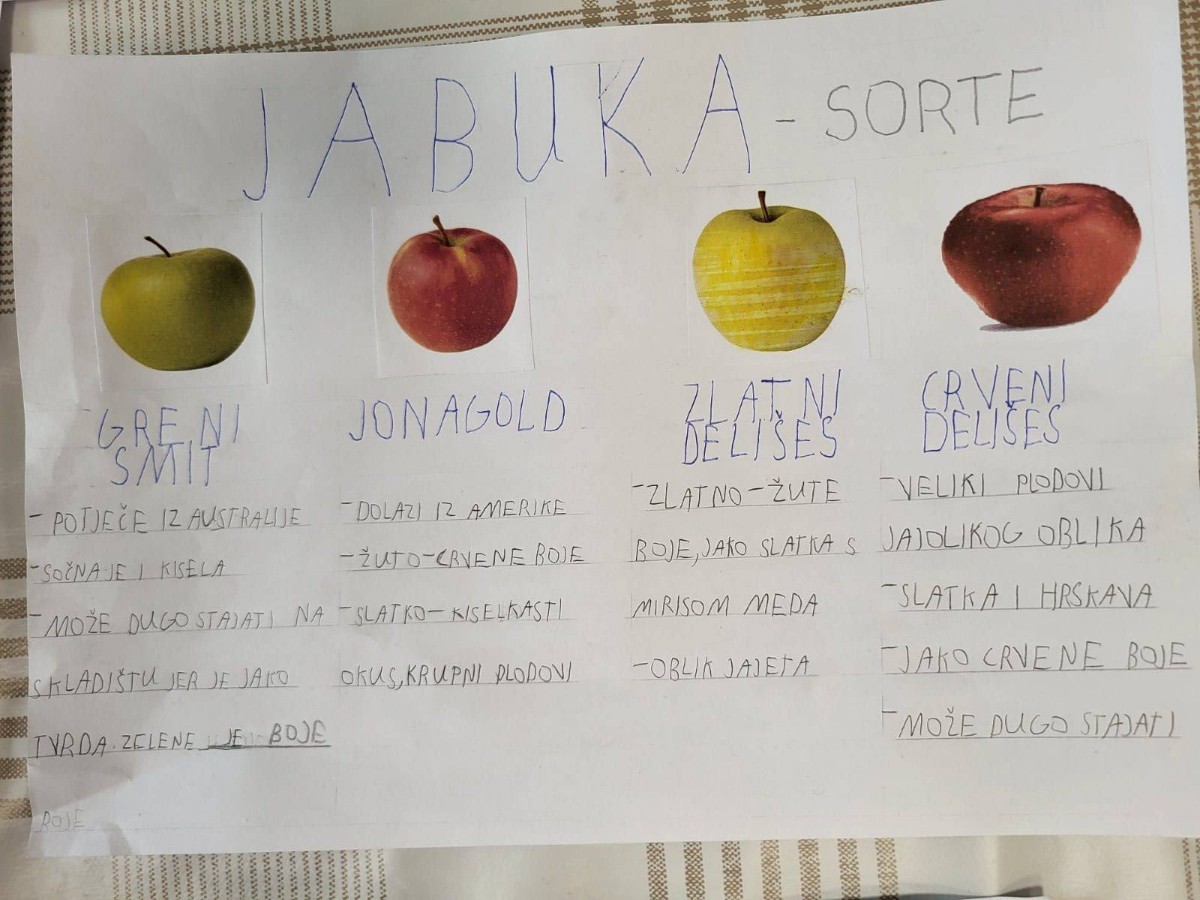 JABUKA - SORTE
GRENI
SMIT
- POTJEČE IZ AUSTRALIJE
- SOČNA JE I KISELA
- MOŽE DUGO STAJATI NA
SKLADIŠTU JER JE JAKO
TVRDA. ZELENE JE BOJE
BOJE
JONAGOLD
- DOLAZI IZ AMERIKE
- ŽUTO-CRVENE BOJE
- SLATKO-KISELKASTI
OKUS, KRUPNI PLODOVI
ZLATNI
DELIŠES
- ZLATNO-ŽUTE
BOJE, JAKO SLATKA S
MIRISOM MEDA
- OBLIK JAJETA
CRVENI
DELIŠES
- VELIKI PLODOVI
JAJOLIKOG OBLIKA
- SLATKA I HRSKAVA
- JAKO CRVENE BOJE
- MOŽE DUGO STAJATI